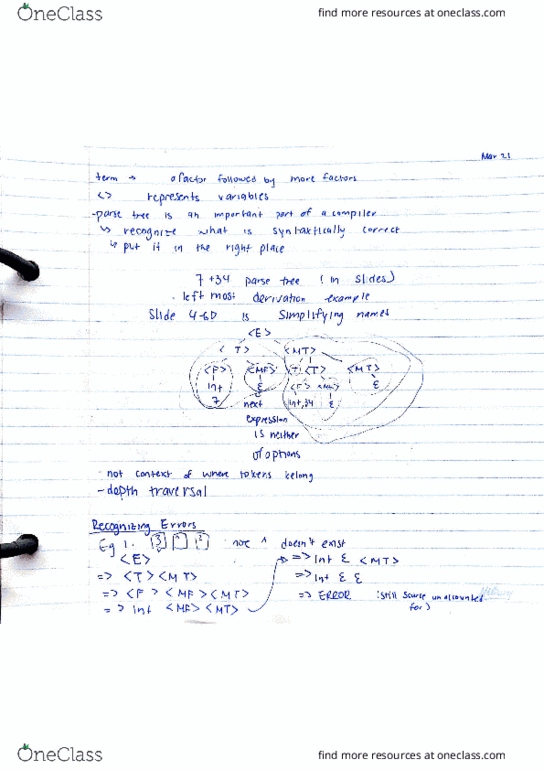 OneClass find more resources at oneclass.com
Mar 21
term → a factor followed by more factors
<> represents variables
-parse tree is an important part of a compiler
↳ recognize what is syntactically correct
↳ put it in the right place
7 +34 parse tree (in slides)
left most derivation example
Slide 4-6D is simplifying names
<E>
<T> <MT>
<F> <MF> + <T> <MT>
int ε <F> <MF> ε
7 next int,34 ε
expression
is neither
of options
- not context of where tokens belong
- depth traversal
Recognizing Errors
Eg 1. 3 ^ 2 note ^ doesn't exist
<E> => int ε <MT>
=> <T> <MT> => int ε ε
=> <F> <MF> <MT> => ERROR (still source unaccounted
=> int <MF> <MT> for)
OneClass find more resources at oneclass.com